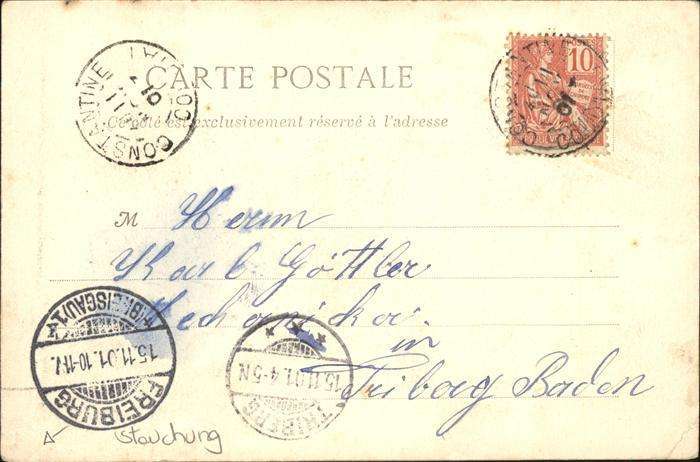 CARTE POSTALE
Ce côté est exclusivement réservé à l'adresse
CONSTANTINE
CONSTANTINE
10
M Herrn
Karl Göttler
Mechaniker
in
Triberg Baden
FREIBURG
(BREISGAU) 1
15.11.01.10-11V.
TRIBERG
15.11.01.4-5N
Stauchung